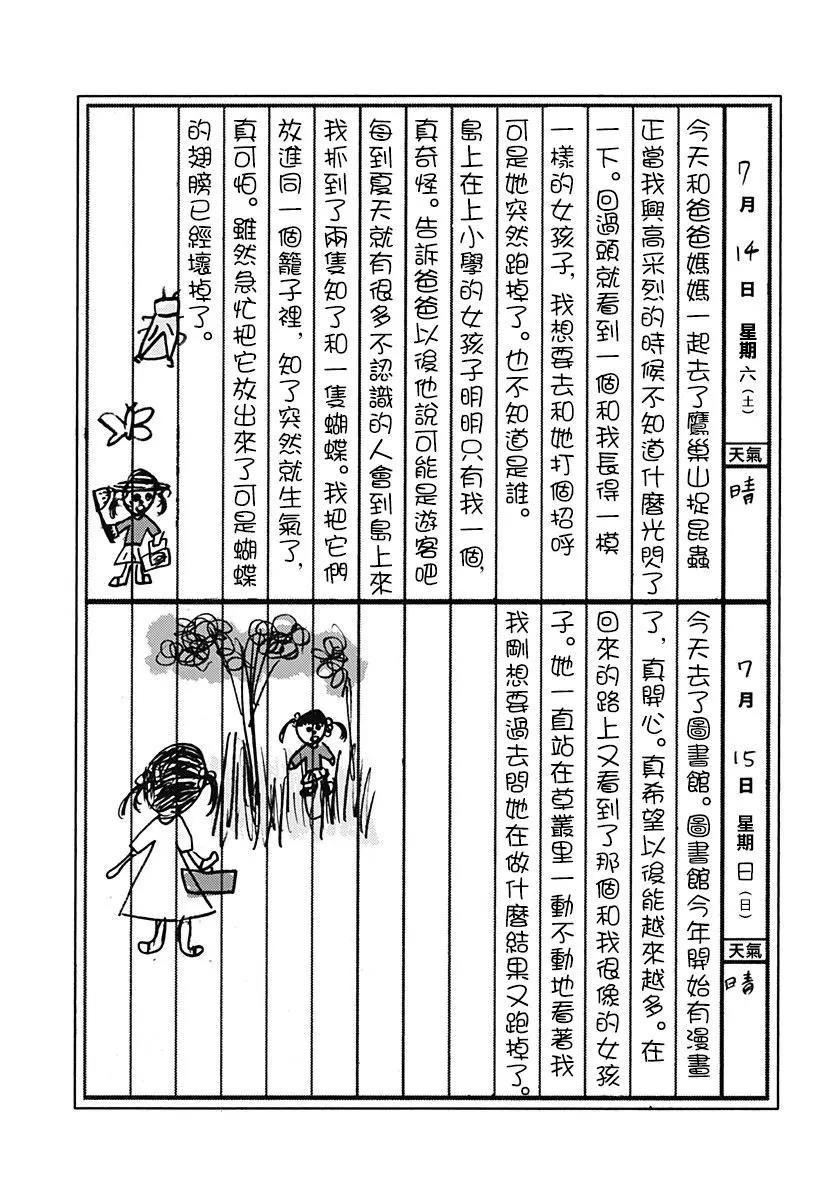 7月 14日 星期六(土)
天氣
晴
今天和爸爸媽媽一起去了鷹巢山捉昆蟲
正當我興高采烈的時候不知道什麼光閃了
一下。回過頭就看到一個和我長得一模
一樣的女孩子，我想要去和她打個招呼
可是她突然跑掉了。也不知道是誰。
島上在上小學的女孩子明明只有我一個，
真奇怪。告訴爸爸以後他說可能是遊客吧
每到夏天就有很多不認識的人會到島上來
我抓到了兩隻知了和一隻蝴蝶。我把它們
放進同一個籠子裡，知了突然就生氣了，
真可怕。雖然急忙把它放出來了可是蝴蝶
的翅膀已經壞掉了。
7月 15日 星期日(日)
天氣
晴
今天去了圖書館。圖書館今年開始有漫畫
了，真開心。真希望以後能越來越多。在
回來的路上又看到了那個和我很像的女孩
子。她一直站在草叢里一動不動地看著我
我剛想要過去問她在做什麼結果又跑掉了。